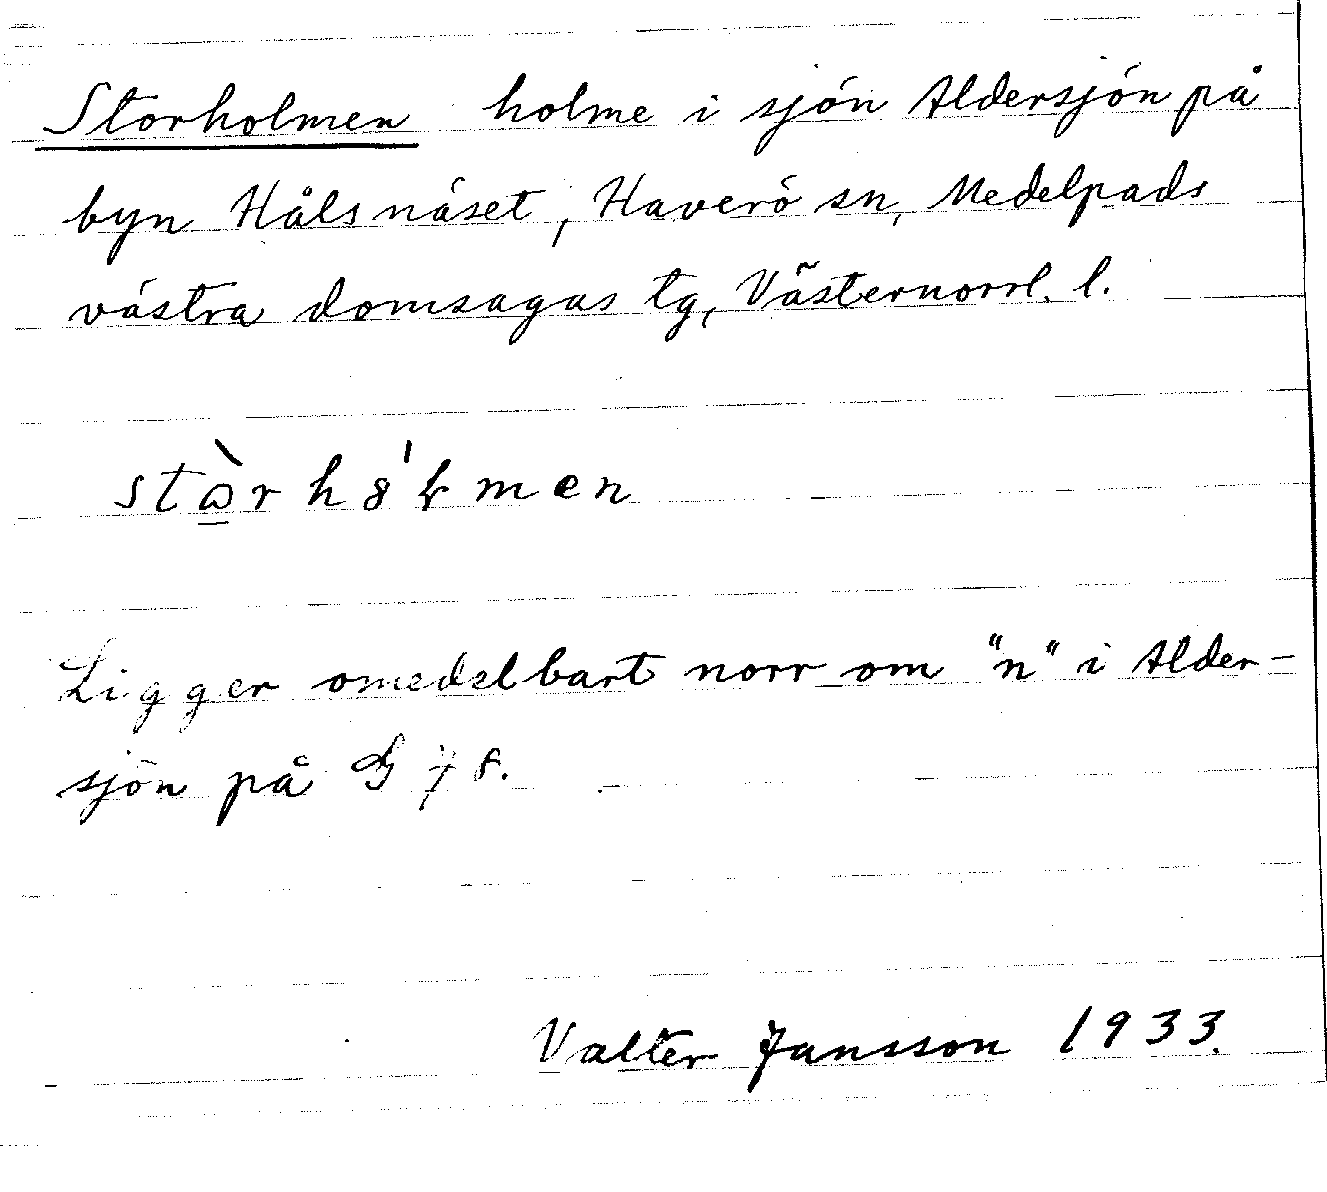 Storholmen holme i sjön Aldersjön på
byn Hålsnäset, Haverö sn, Medelpads
västra domsagas tg, Västernorrl. l.
Ligger omedelbart norr om "n" i Alder-
sjön på G 78.
Valter Jansson 1933.